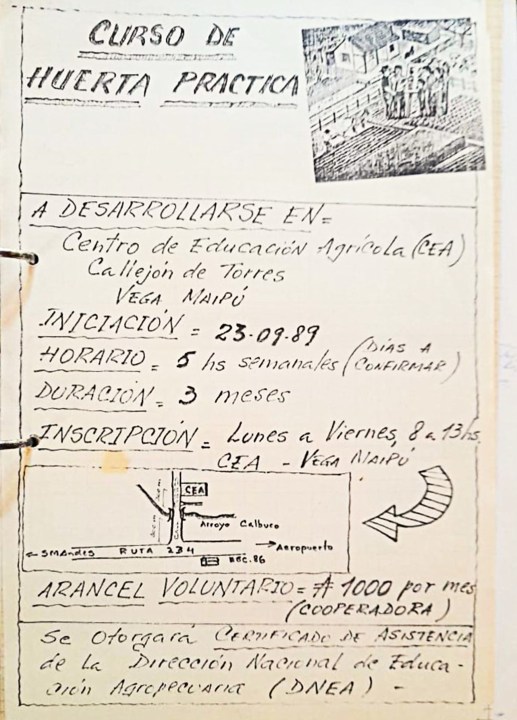 CURSO DE
HUERTA PRACTICA
A DESARROLLARSE EN=
Centro de Educación Agrícola (CEA)
Callejón de Torres
VEGA MAIPÚ
INICIACIÓN = 23-09-89
HORARIO = 5 hs semanales (DÍAS A CONFIRMAR)
DURACIÓN = 3 meses
INSCRIPCIÓN = Lunes a Viernes, 8 a 13 hs.
CEA - VEGA MAIPÚ
CEA
Arroyo Calbuco
← SMAndes RUTA 234 → Aeropuerto
BEC.86
ARANCEL VOLUNTARIO = ₳ 1000 por mes
(COOPERADORA)
Se otorgará CERTIFICADO DE ASISTENCIA
de la Dirección Nacional de Educa-
ción Agropecuaria (DNEA) -